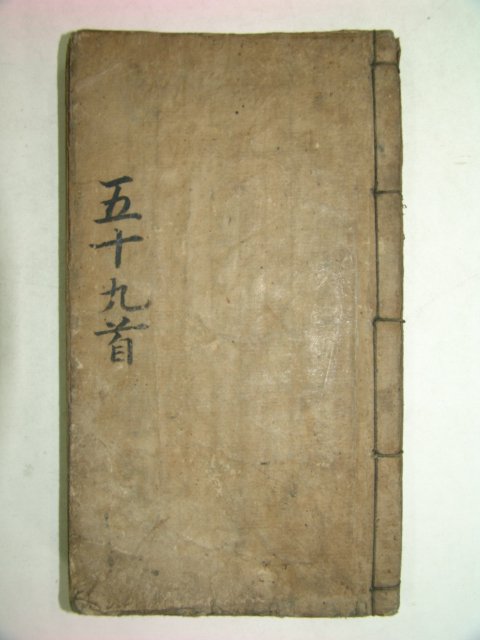 五十九首